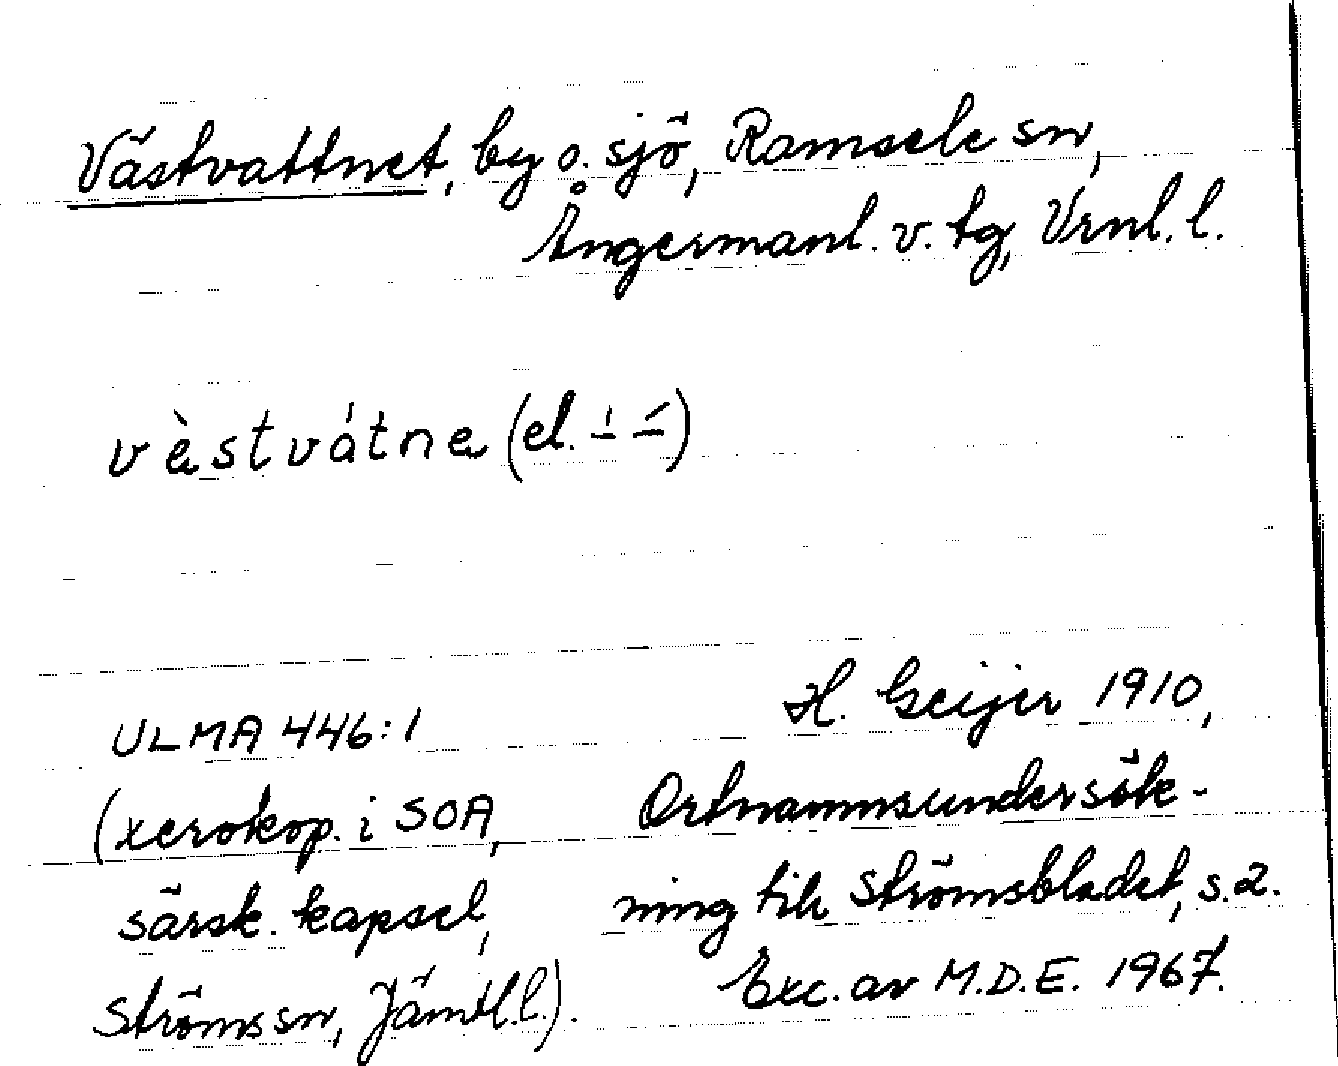 Västvattnet, by o. sjö, Ramsele sn,
Ångermanl. v. tg, Vrnl. l.
vèstvátne (el. –́ –́)
ULMA 446:1
(xerokop. i SOA,
särsk. kapsel,
Ströms sn, Jämtl.l.).
H. Geijer 1910,
Ortnamnsundersök-
ning till Strömsbladet, s.2.
Exc. av M.D.E. 1967.